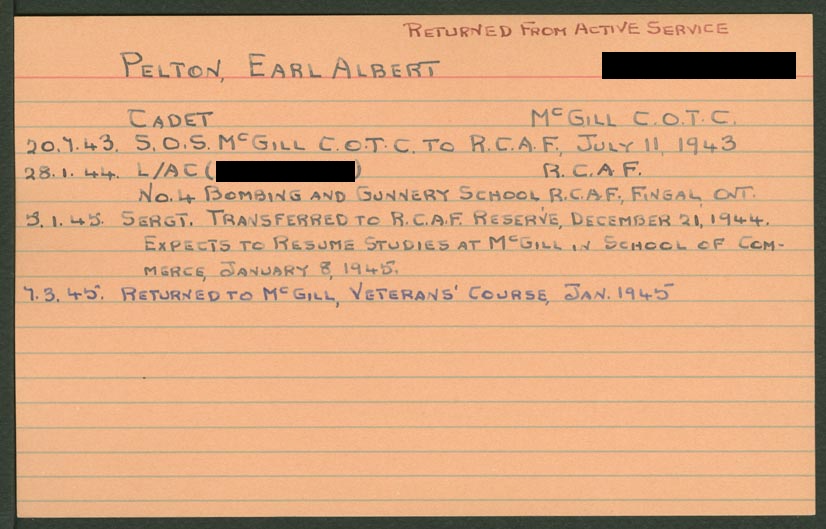 RETURNED FROM ACTIVE SERVICE
PELTON, EARL ALBERT
CADET McGILL C.O.T.C.
20.7.43. S.O.S. McGILL C.O.T.C. TO R.C.A.F., JULY 11, 1943
28.1.44. L/AC ( ) R.C.A.F.
No. 4 BOMBING AND GUNNERY SCHOOL, R.C.A.F., FINGAL, ONT.
5.1.45. SERGT. TRANSFERRED TO R.C.A.F. RESERVE, DECEMBER 21, 1944.
EXPECTS TO RESUME STUDIES AT McGILL IN SCHOOL OF COM-
MERCE, JANUARY 8, 1945.
7.3.45. RETURNED TO McGILL, VETERANS' COURSE, JAN. 1945